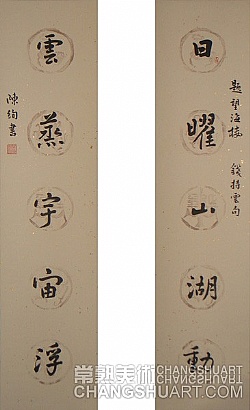 題望海樓 錢持雲句
日曜山湖動
雲蒸宇宙浮
陳絢書
常熟美術
CHANGSHUART
CHANGSHUART.COM